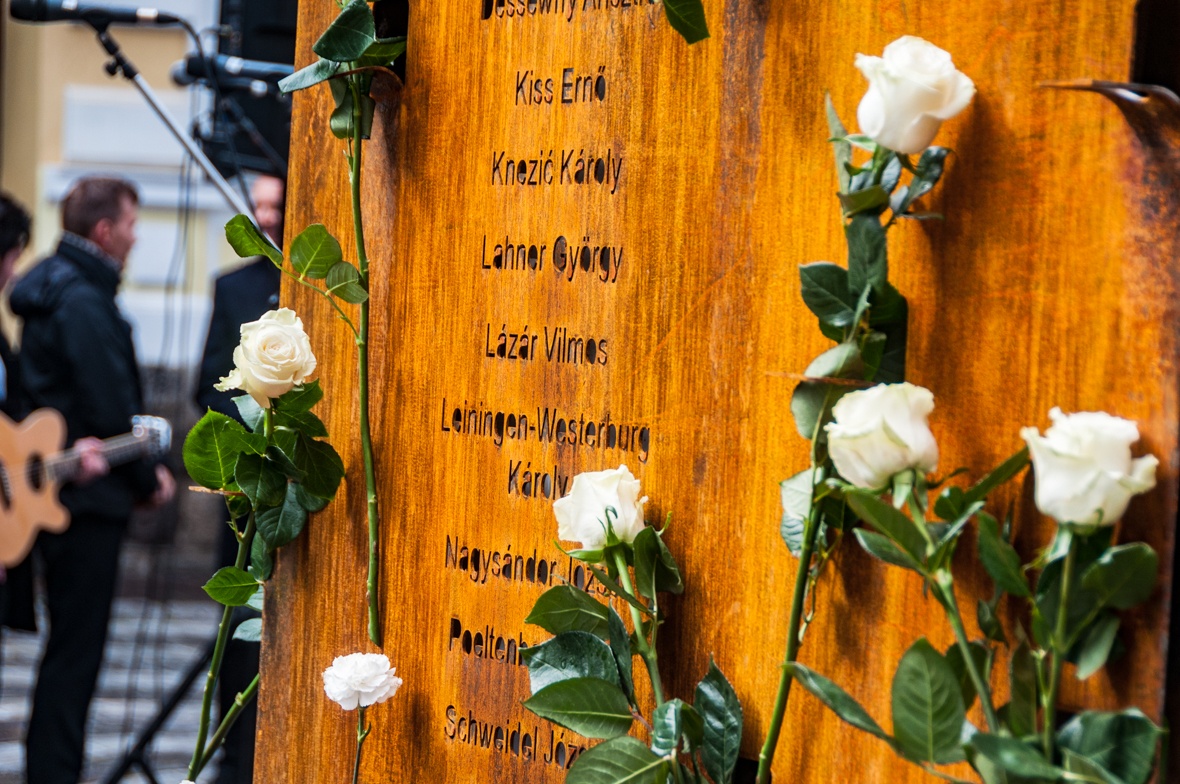 Dessewffy Arisztid
Kiss Ernő
Knezić Károly
Lahner György
Lázár Vilmos
Leiningen-Westerburg
Károly
Nagysándor József
Schweidel József